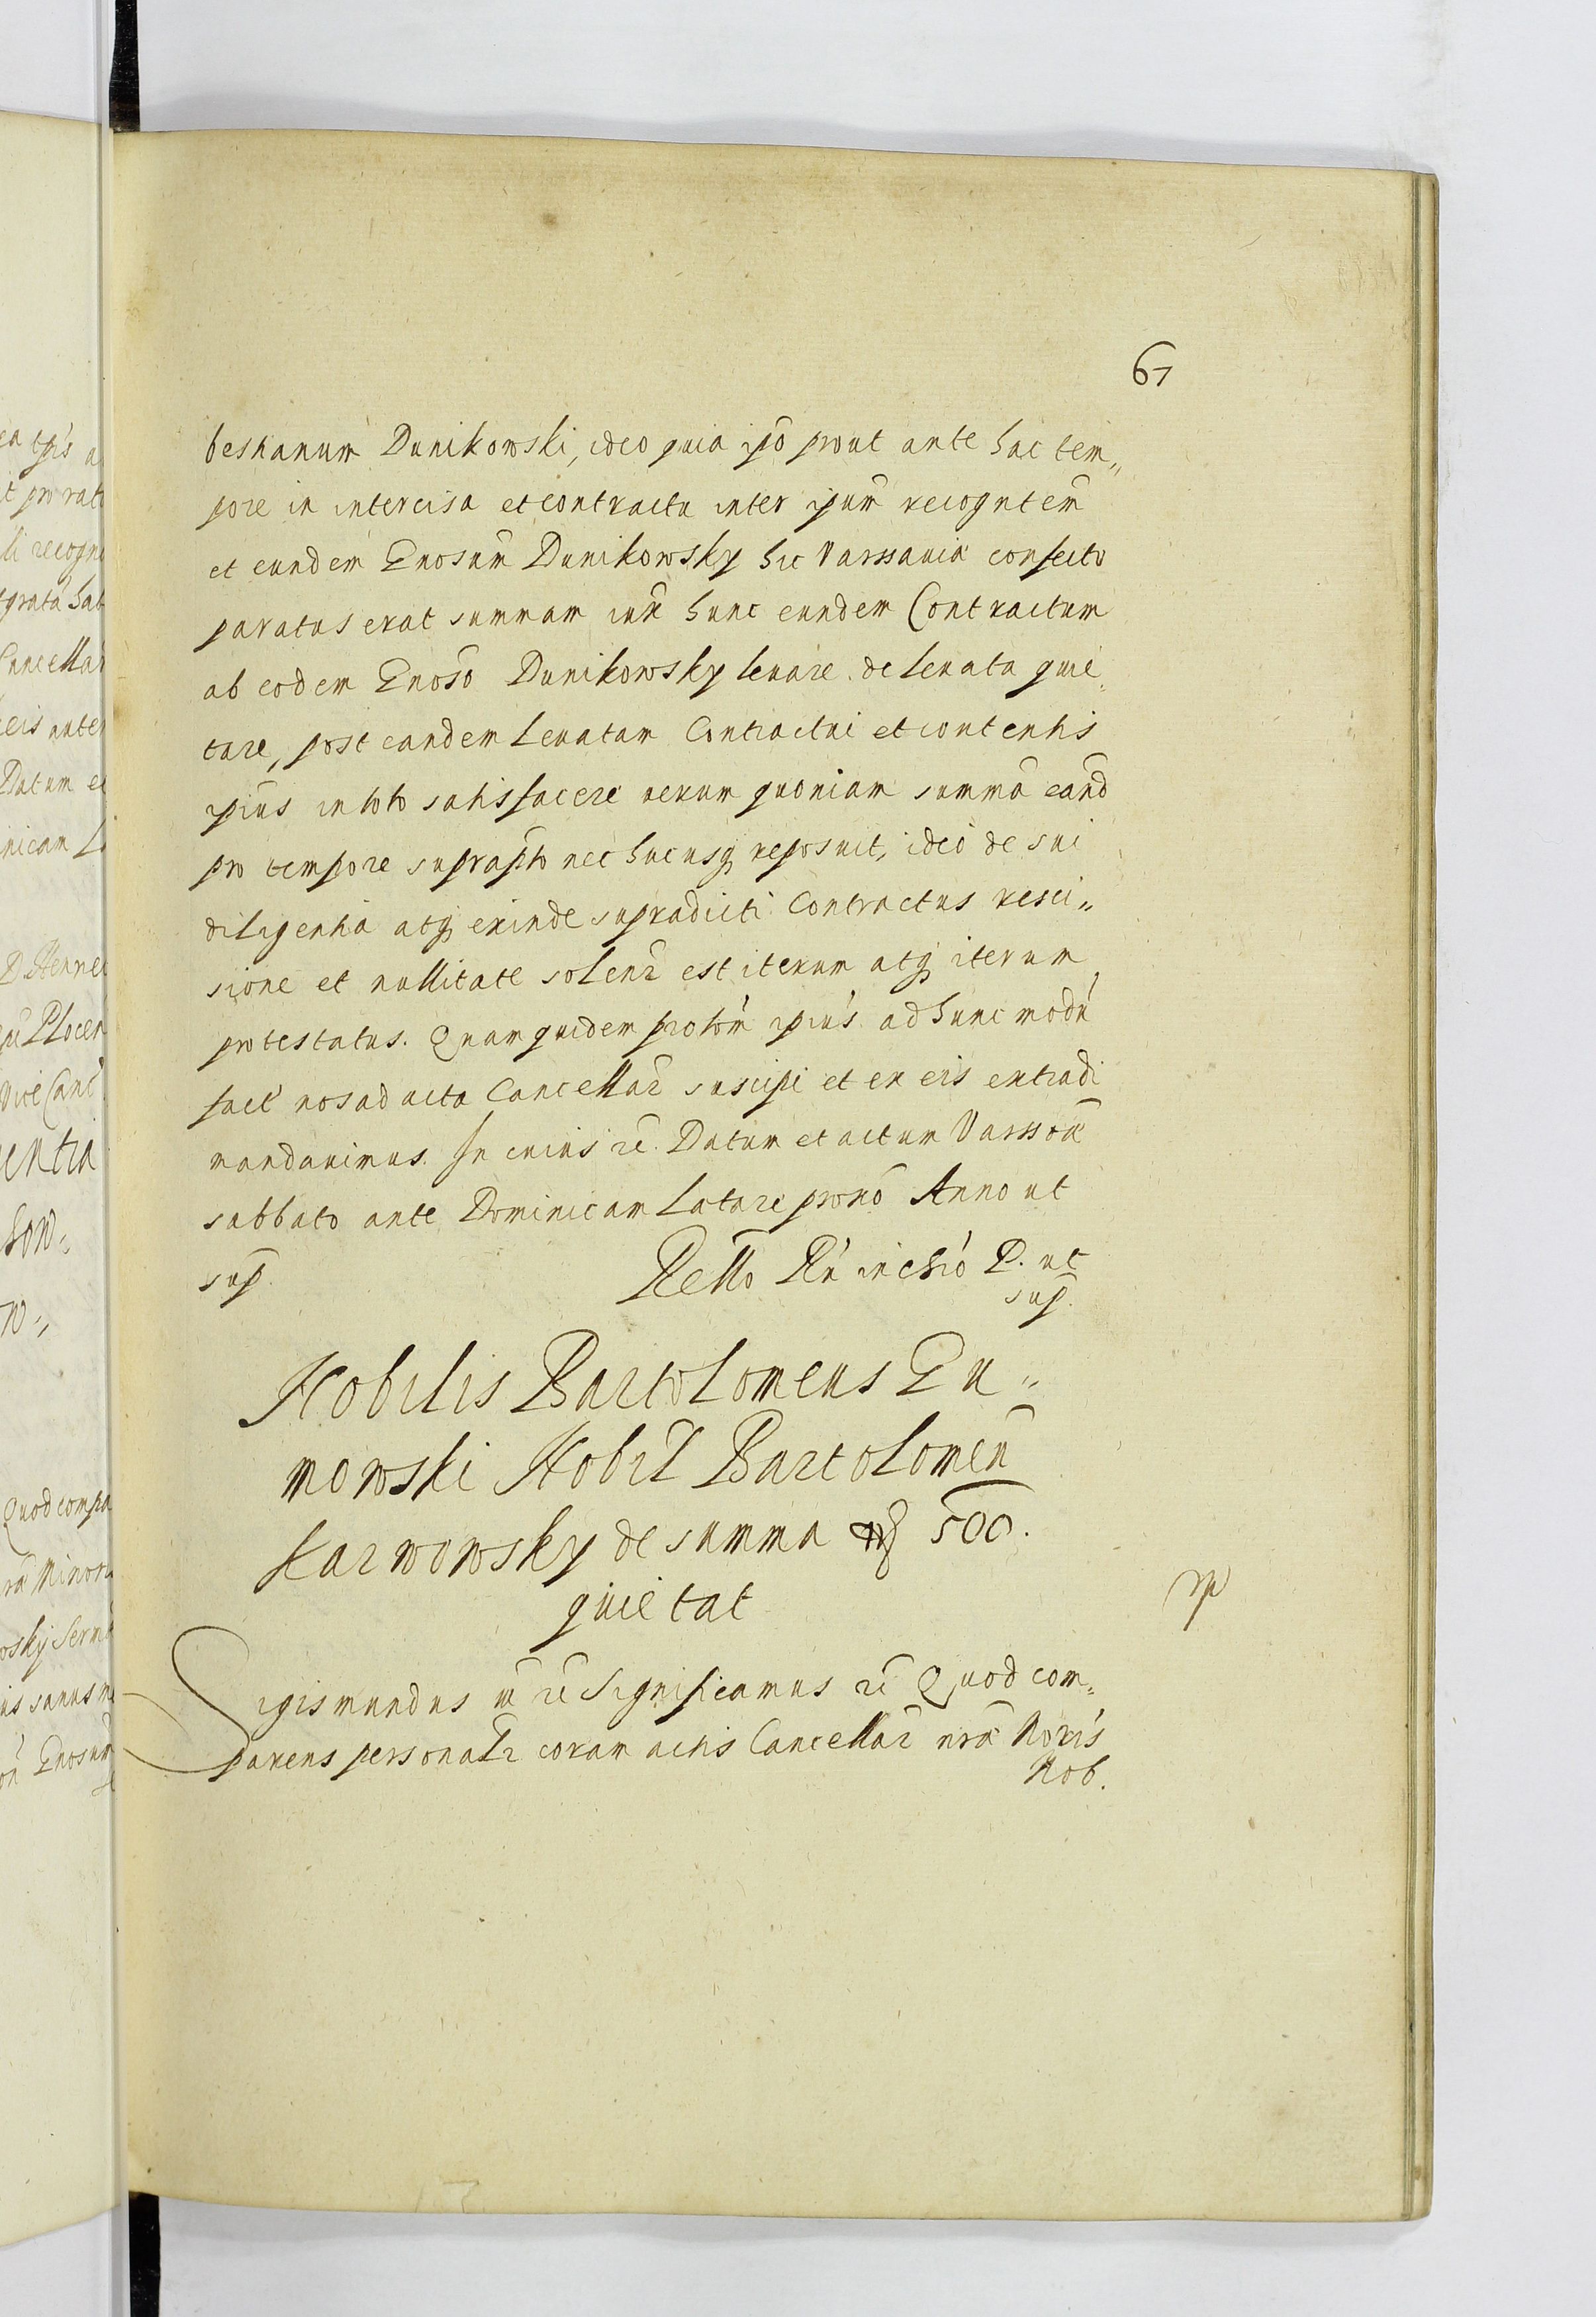 67
bestianum Dunikowski, ideo quia ipō prout ante hac tem„
pore in intercisa et contractu inter ipum̄ recogntem̄
et eundem Gnosum̄ Dunikowsky hic Varssauiæ confecto
paratus erat summam iux̄ hunc eundem Contractum
ab eodem Gnosō Dunikowsky leuare de leuata quie„
tare, post eandem Leuatam Contractui et contentis
ipius̄ in toto satisfacere uerum quoniam summā eand̄
pro tempore suprapto nec hucusq reposuit, ideo de sui
diligentia atq exinde supradicti Contractus resci„
sione et nullitate solenr̄ est iterum atq iterum
protestatus. Quam quidem protom̄ ipius̄ ad hunc modū
fact nos ad acta Cancellar̄ suscipi et ex eis extradi
mandauimus. In cuius rē. Datum et actum Varssoæ
sabbato ante Dominicam Lætare proxō Anno ut
sup.
Rellō Rń in chrō P. ut
sup.
Nobilis Bartolomeus Gu„
mowski Nobil Bartolomeū
Karwowsky de summa 500.
quietat
Sigismundus rē Significamus rē Quod com„
parens personalr̄ coram actis Cancellar̄ nrā Noris
Nob.